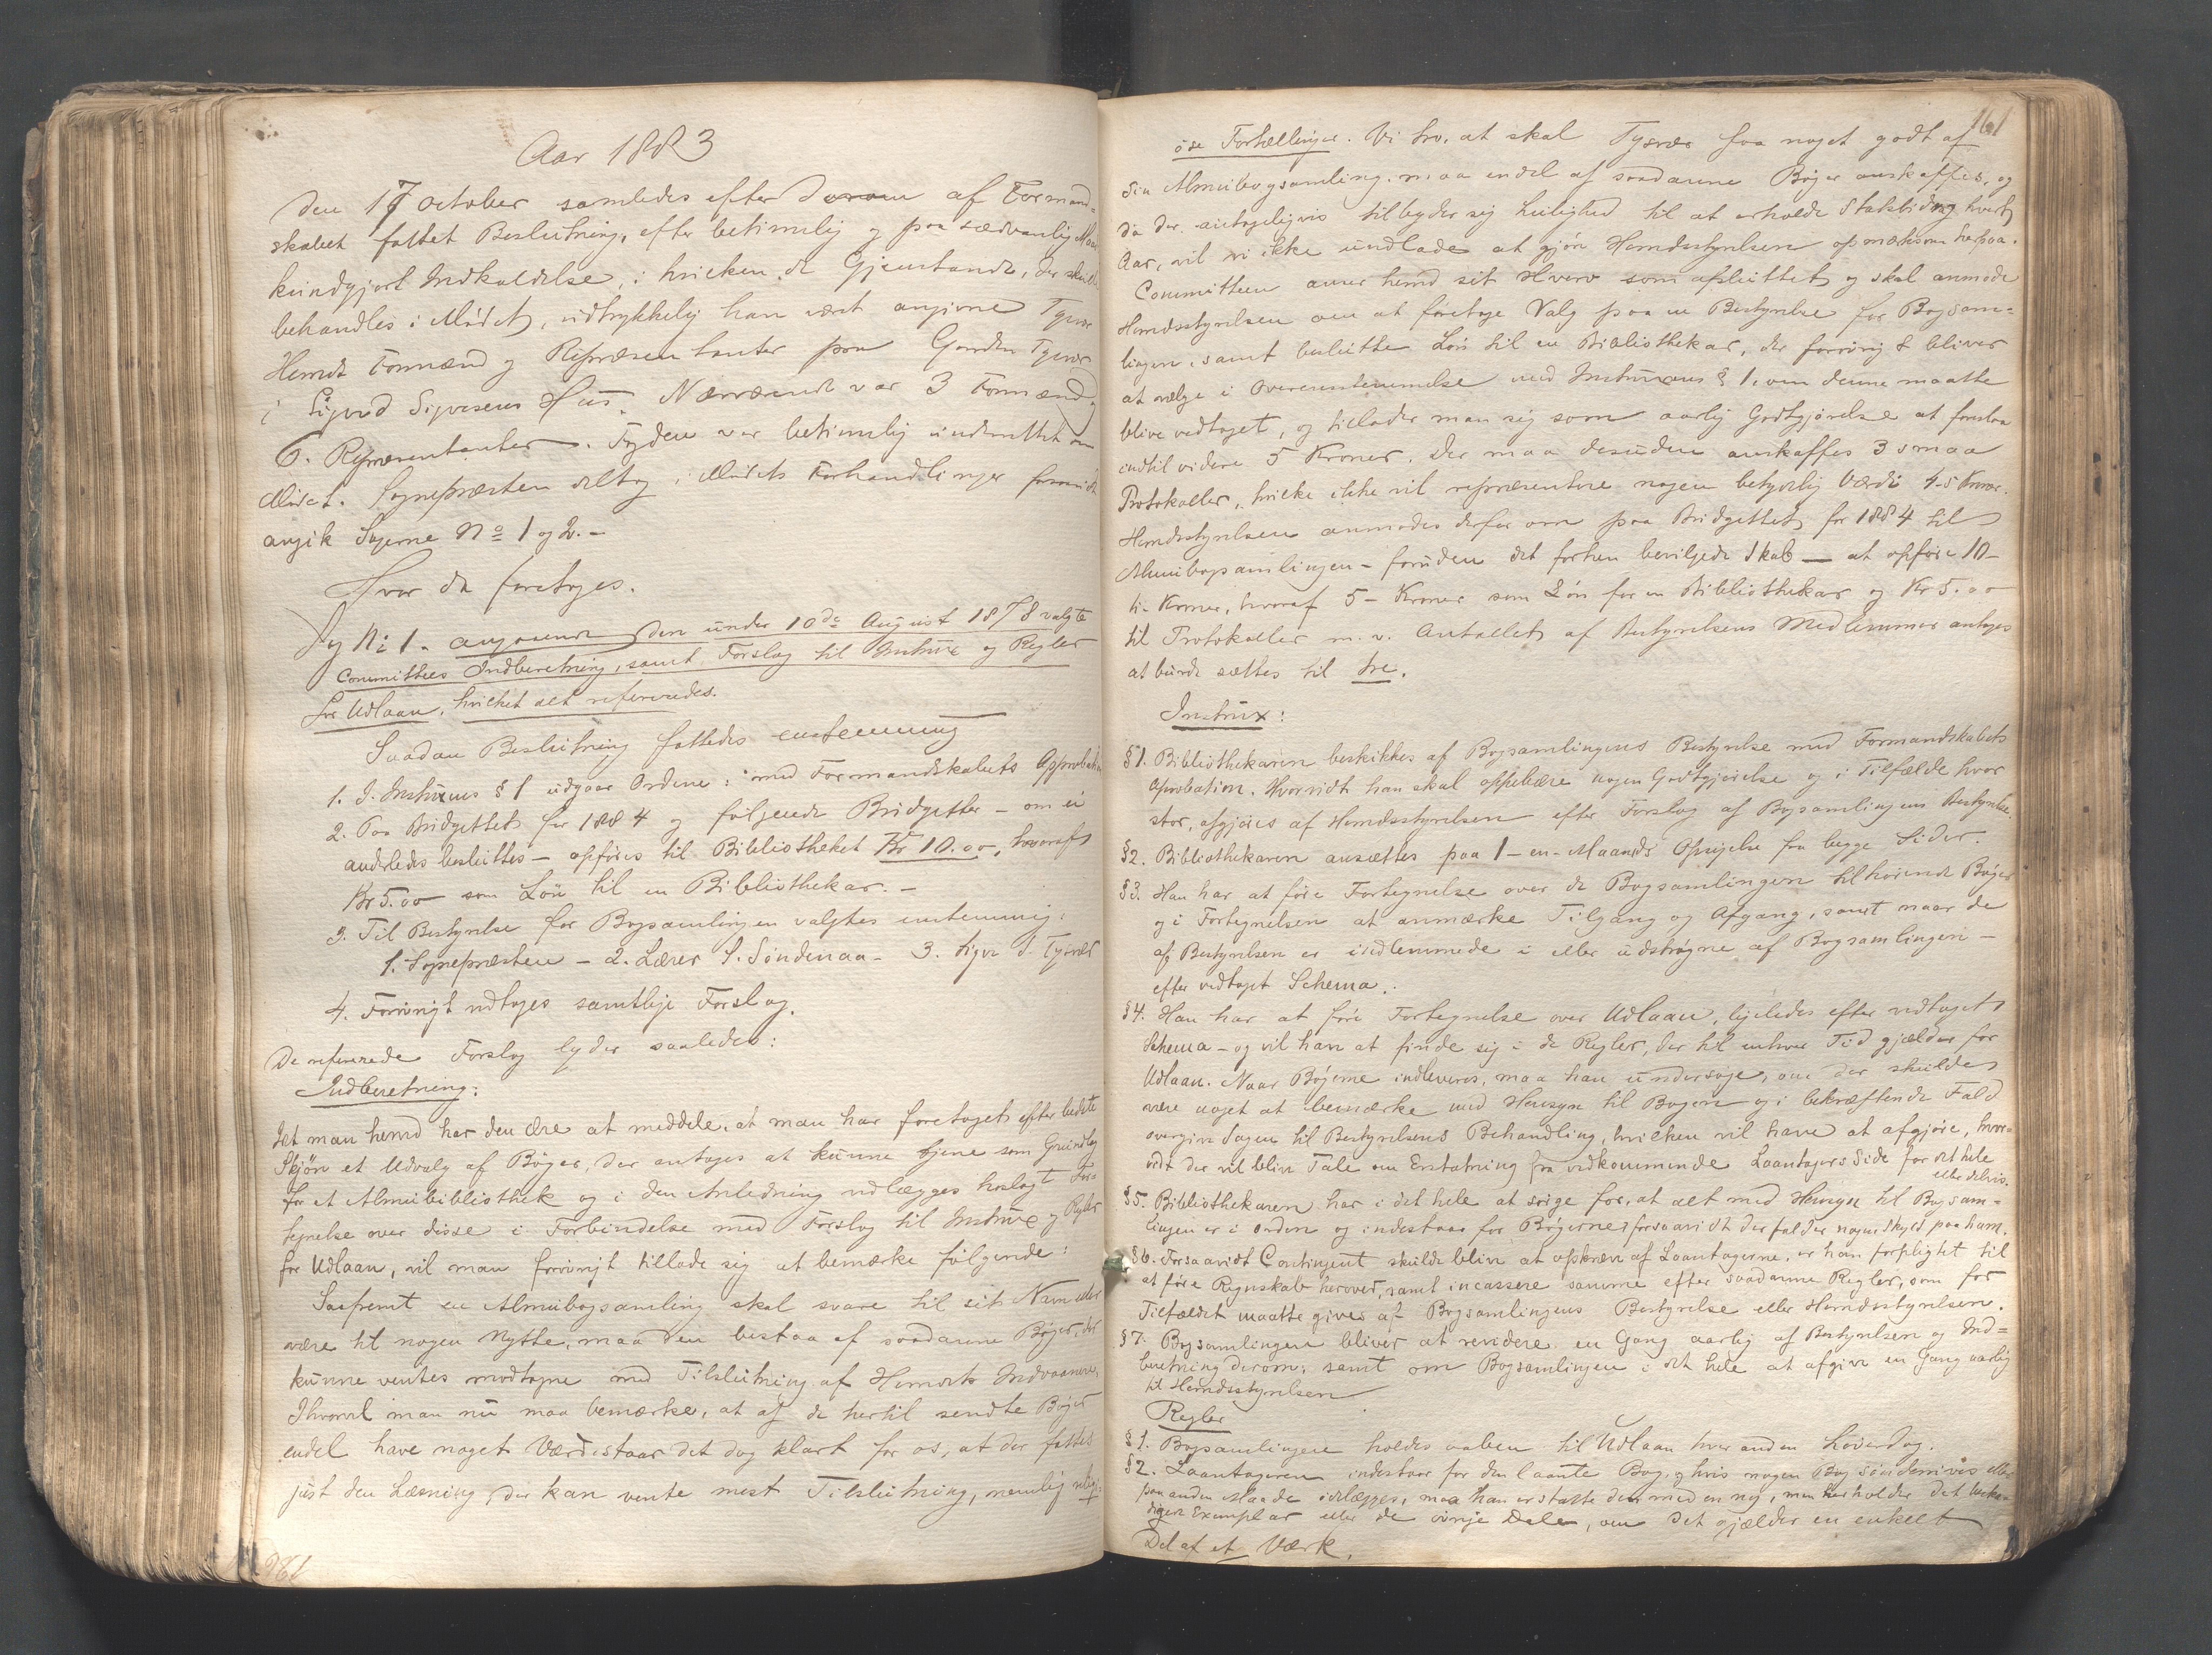 Aar 1883
Den 17 October samledes efter derom af Formand=
skabet fattet Beslutning, efter betimelig og paa sædvanlig Maade
kundgjort Indkaldelse, i hvilken de Gjenstande, der skulde
behandles i Mødet, udtrykkelig har vært angivne Tysvær
Herreds Formænd og Repræsentanter paa Gaarden Tysvær
i Sigvard Sigversens Hus. Nærværende var 3 Formænd og
6. Repræsentanter. Fogden var betimelig underrettet om
Mødet. Sognepræsten deltog i Mødets Forhandlinger forsaavidt
angik Sagerne No 1 og 2. –
Hvor da foretoges.
Sag N: 1. angaaende den under 10de August 1878 valgte
Committees Indberetning, samt Forslag til Instrux og Regler
for Udlaan, hvilket alt refereredes.
Saadan Beslutning fattedes enstemmig
1. I. Instruxens § 1 udgaar Ordene: "med Formandskabets Approbation
2. Paa Budgettet for 1884 og følgende Budgetter – om ei
anderledes besluttes – opføres til Bibliotheket Kr 10.00, hvoraf
Kr 5.00 som Løn til en Bibliothekar. –
3. Til Bestyrelse for Bogsamlingen valgtes enstemmig:
1. Sognepræsten – 2. Lærer S. Søndenaa – 3. Sigv S. Tysvær
4. Forøvrigt vedtoges samtlige Forslag.
De refererede Forslag lyder saaledes:
Indberetning:
Idet man herved har den ære at meddele, at man har foretaget efter bedste
Skjøn et Udvalg af Bøger, der antages at kunne tjene som Grundlag
for et Almuebibliothek og i den Anledning vedlægges heslagt For=
tegnelse over disse i Forbindelse med Forslag til Instrux og Regler
for Udlaan, vil man forøvrigt tillade sig at bemærke følgende:
Saafremt en Almuebogsamling skal svare til sit Navn eller
være til nogen Nytte, maa den bestaa af saadanne Bøger, der
kunne ventes modtagne med Tilslutning af Herredets Indvaanere,
Ihvorvel man nu maa bemærke, at af de hertil sendte Bøger
endel have noget Værd, staar det dog klart for os, at der fattes
just den Læsning, der kan vente mest Tilslutning, nemlig religi=
161
øse Fortællinger. Vi tro, at skal Tysvær faa noget godt af
sin Almuebogsamling, maa endel af saadanne Bøger anskaffes, og
da der antageligvis tilbyder sig Leilighed til at erholde Statsbidrag hvert
Aar, vil vi ikke undlade at gjøre Herredsstyrelsen opmærksom herpaa.
Committeen anser herved sit Hverv som afsluttet og skal anmode
Herredsstyrelsen om at foretage Valg paa en Bestyrelse for Bogsam=
lingen, samt beslutte Løn til en Bibliothekar, der forøvrigt bliver
at vælge i Overensstemmelse med Instruxens § 1, om denne maatte
blive vedtaget, og tillader man sig som aarlig Godtgjørelse at foreslaa
indtil videre 5 Kroner. Der maa desuden anskaffes 3 smaa
Protokoller, hvilke ikke vil repræsentere nogen betydelig Værdi 4-5 Kroner.
Herredsstyrelsen anmodes derfor om paa Budgettet for 1884 til
Almuebogsamlingen – foruden det forhen bevilgede Skab – at opføre 10–
ti– Kroner, hvoraf 5 – Kroner som Løn for en Bibliothekar og Kr 5.00
til Protokoller m. v. Antallet af Bestyrelsens Medlemmer antages
at burde sættes til tre.
Instrux:
§ 1. Bibliothekaren beskikkes af Bogsamlingens Bestyrelse med Formandskabets
Aprobation. Hvorvidt han skal oppebære nogen Godtgjørelse og i Tilfælde hvor
stor, afgjøres af Herredsstyrelsen efter Forslag af Bogsamlingens Bestyrelse.
§ 2. Bibliothekaren ansættes paa 1 – en – Maaneds Opsigelse fra begge Sider.
§ 3. Han har at føre Fortegnelse over de Bogsamlingen tilhørende Bøger
og i Fortegnelsen at anmærke Tilgang og Afgang, samt naar de
af Bestyrelsen er indlemmede i eller udstrøgne af Bogsamlingen –
efter vedtaget Schema.
§ 4. Han har at føre Fortegnelse over Udlaan, ligeledes efter vedtaget
Schema – og vil han at finde sig i de Regler, der til enhver Tid gjælder for
Udlaan. Naar Bøgerne indleveres, maa han undersøge, om der skulde
være noget at bemærke med Hensyn til Bogen og i bekræftende Fald
overgive Sagen til Bestyrelsens Behandling, hvilken vil have at afgjøre, hvor=
vidt der vil blive Tale om Erstatning fra vedkommende Laantagers Side for det hele
eller delvis.
§ 5. Bibliothekaren har i det hele at sørge for, at alt med Hensyn til Bogsam=
lingen er i Orden og indestaar for Bøgerne, forsaavidt der falder nogen Skyld paa ham.
§ 6. Forsaavidt Contingent skulde blive at opkræve af Laantagerne, er han forpligtet til
at føre Regnskab herover, samt incassere samme efter saadanne Regler, som for
Tilfældet maatte gives af Bogsamlingens Bestyrelse eller Herredsstyrelsen.
§ 7. Bogsamlingen bliver at revidere en Gang aarlig af Bestyrelsen og Ind=
beretning derom, samt om Bogsamlingen i det hele at afgive en Gang aarlig
til Herredsstyrelsen
Regler
§ 1. Bogsamlingen holdes aaben til Udlaan hver anden Løverdag.
§ 2. Laantageren indestaar for den laante Bog, og hvis nogen Bog sønderrives eller
paa anden Maade ødelægges, maa han erstatte den med en ny, men herholder det beska=
digede Exemplar eller de øvrige Dele, om det gjælder en enkelt
Del af et Værk.